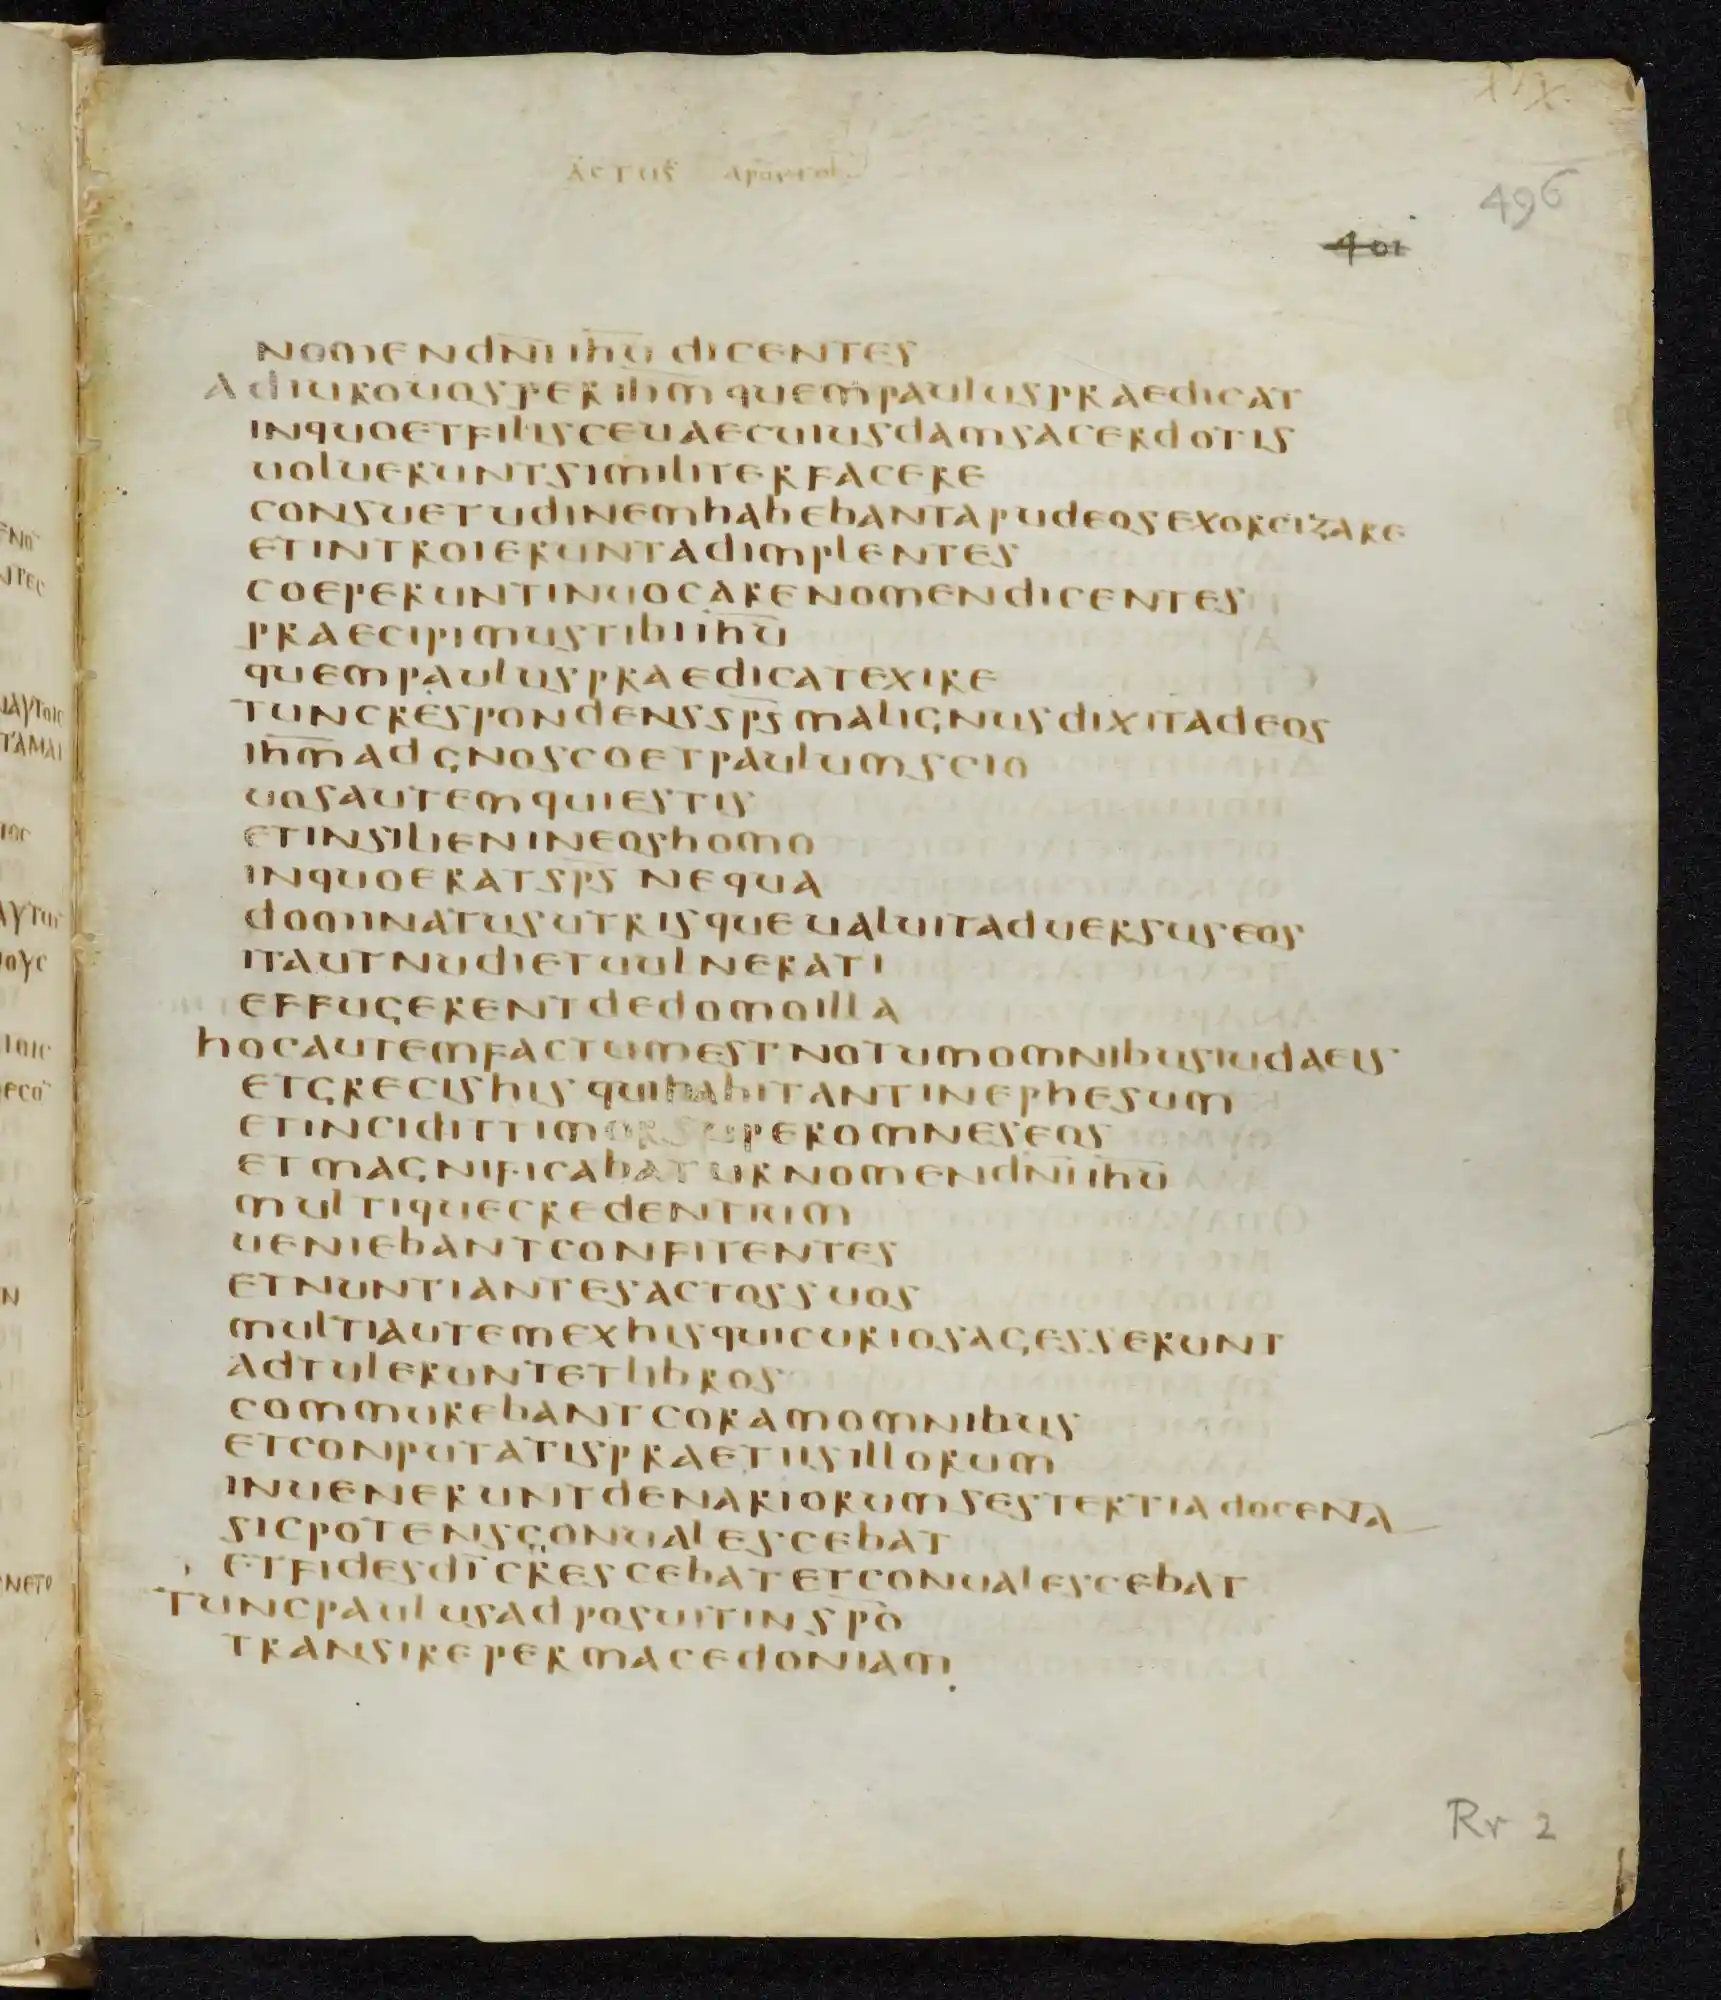 XIX.
ACTUS apostol
496
401
NOMEN DN̅I IH̅U DICENTES
ADIURO UOS PER IH̅M QUEM PAULUS PRAEDICAT
IN QUO ET FILII SCEUAE CUIUSDAM SACERDOTIS
UOLUERUNT SIMILITER FACERE
CONSUETUDINEM HABEBANT APUD EOS EXORCIZARE
ET INTROIERUNT ADIMPLENTES
COEPERUNT INUOCARE NOMEN DICENTES
PRAECIPIMUS TIBI IH̅U
QUEM PAULUS PRAEDICAT EXIRE
TUNC RESPONDENS SP̅S MALIGNUS DIXIT AD EOS
IH̅M ADGNOSCO ET PAULUM SCIO
UOS AUTEM QUI ESTIS
ET INSILIEN IN EOS HOMO
IN QUO ERAT SP̅S NEQUA
DOMINATUS UTRISQUE UALUIT ADUERSUS EOS
ITA UT NUDI ET UULNERATI
EFFUGERENT DE DOMO ILLA
HOC AUTEM FACTUM EST NOTUM OMNIBUS IUDAEIS
ET GRECIS HIS QUI HABITANT IN EPHESUM
ET INCIDIT TIMOR SUPER OMNES EOS
ET MAGNIFICABATUR NOMEN DN̅I IH̅U
MULTIQUE CREDENTIUM
UENIEBANT CONFITENTES
ET NUNTIANTES ACTOS SUOS
MULTI AUTEM EX HIS QUI CURIOSA GESSERUNT
ADTULERUNT ET LIBROS
COMMUREBANT CORAM OMNIBUS
ET CONPUTATIS PRAETIIS ILLORUM
INUENERUNT DENARIORUM SESTERTIA DOCENTA
SIC POTENS CONUALESCEBAT
ET FIDES DI̅ CRESCEBAT ET CONUALESCEBAT
TUNC PAULUS ADPOSUIT IN SPO̅
TRANSIRE PER MACEDONIAM
Rr 2